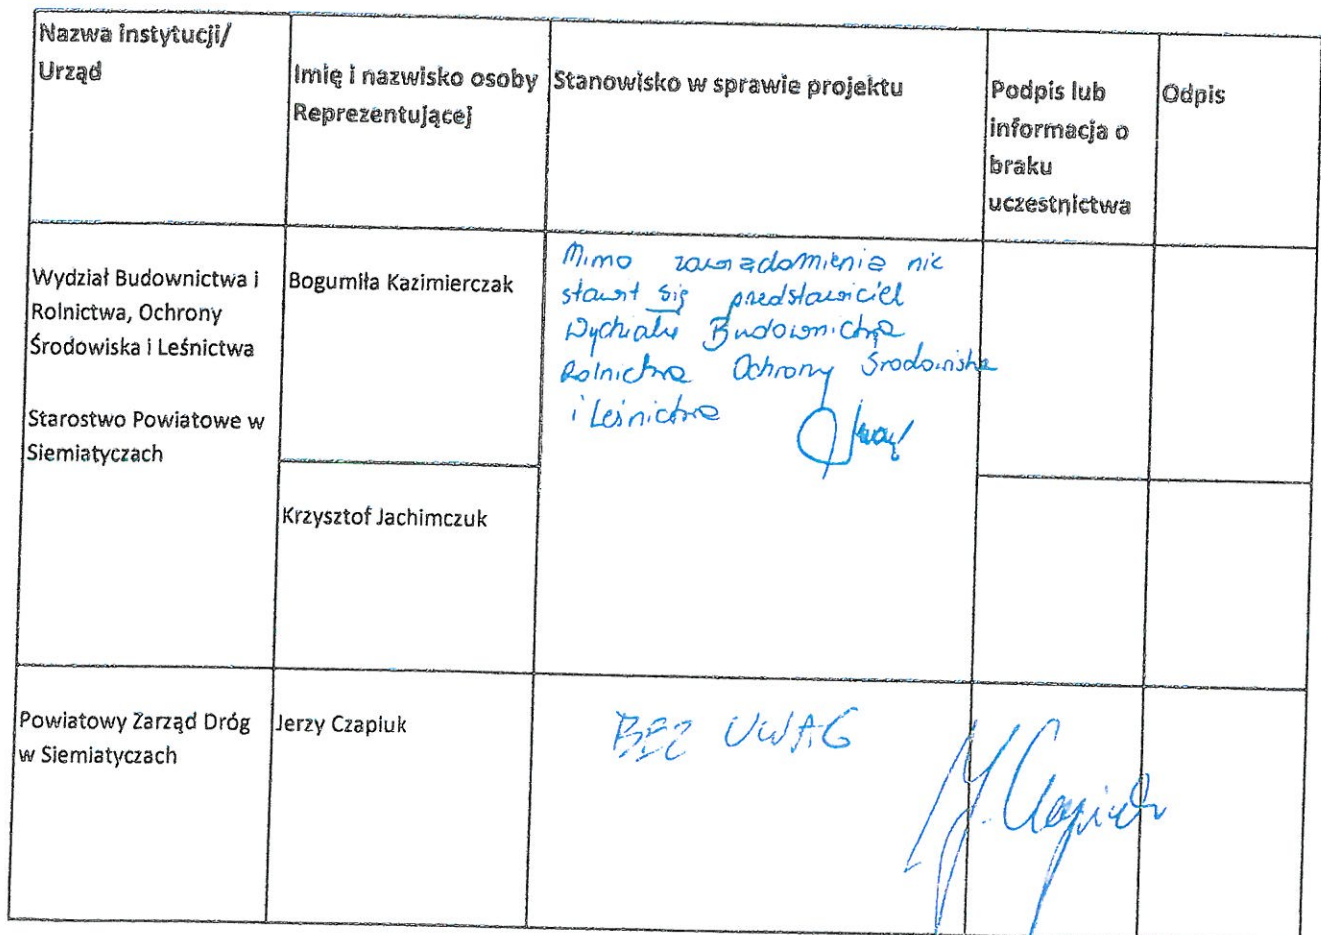 Nazwa instytucji/
Urząd
Imię i nazwisko osoby
Reprezentującej
Stanowisko w sprawie projektu
Podpis lub
informacja o
braku
uczestnictwa
Odpis
Wydział Budownictwa i
Rolnictwa, Ochrony
Środowiska i Leśnictwa
Starostwo Powiatowe w
Siemiatyczach
Bogumiła Kazimierczak
Mimo zawiadomienia nie
stawił się przedstawiciel
Wydziału Budownictwa
Rolnictwa Ochrony Środowiska
i Leśnictwa
Krzysztof Jachimczuk
Powiatowy Zarząd Dróg
w Siemiatyczach
Jerzy Czapiuk
BEZ UWAG